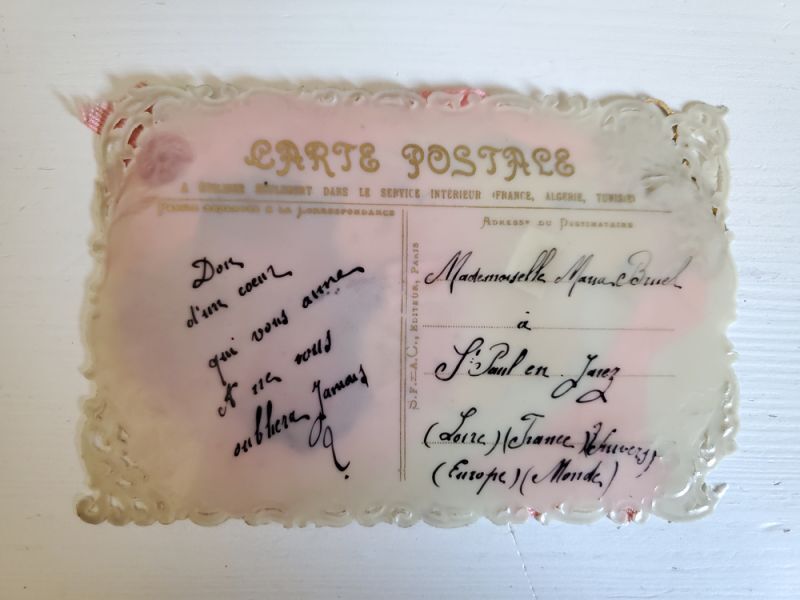 CARTE POSTALE
A UTILISER SEULEMENT DANS LE SERVICE INTÉRIEUR (FRANCE, ALGERIE, TUNISIE)
PARTIE RÉSERVÉE A LA CORRESPONDANCE
ADRESSE DU DESTINATAIRE
Don
d'un coeur
qui vous aime
A ne vous
oubliera Jamais
D.F.=A.C., EDITEUR, PARIS
Mademoiselle Maria Bruel
à
St Paul en Jarez
(Loire) (France) (Univers)
(Europe) (Monde)